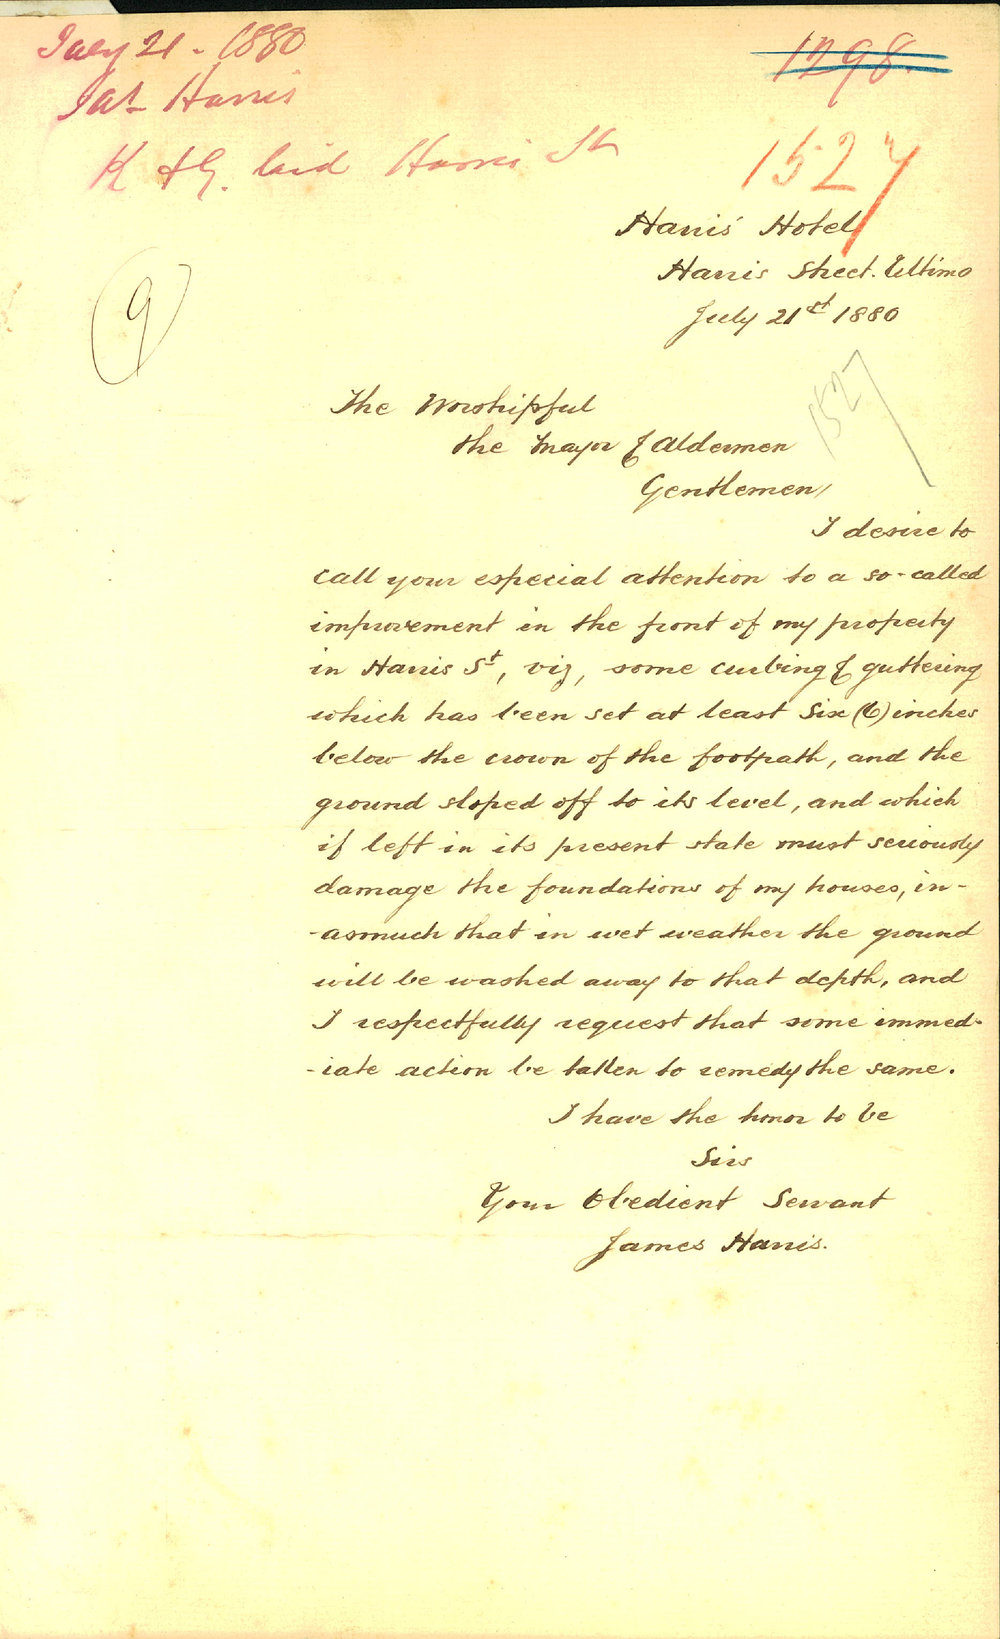 July 21 - 1880
Jas Harris
K & G. laid Harris St
1298.
1527
Harris' Hotel
Harris Street. Ultimo
July 21st 1880
9
1527
The Worshipful
the Mayor & Aldermen
Gentlemen,
I desire to
call your especial attention to a so-called
improvement in the front of my property
in Harris St, viz, some curbing & guttering
which has been set at least Six (6) inches
below the crown of the footpath, and the
ground sloped off to its level, and which
if left in its present state must seriously
damage the foundations of my houses, in-
-asmuch that in wet weather the ground
will be washed away to that depth, and
I respectfully request that some immed-
-iate action be taken to remedy the same.
I have the honor to be
Sirs
Your Obedient Servant
James Harris.